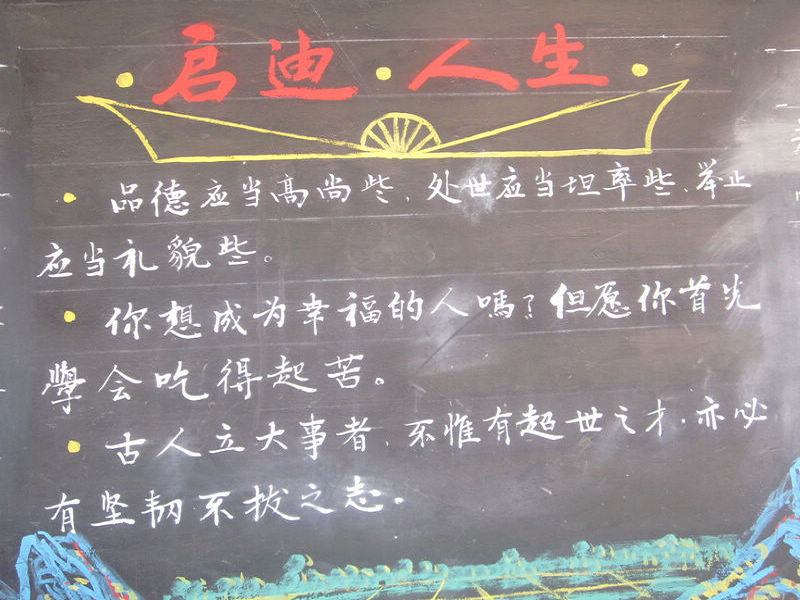 启迪·人生
·品德应当高尚些，处世应当坦率些、举止
应当礼貌些。
·你想成为幸福的人嗎？但愿你首先
學会吃得起苦。
·古人立大事者，不惟有超世之才，亦必
有坚韧不拔之志。